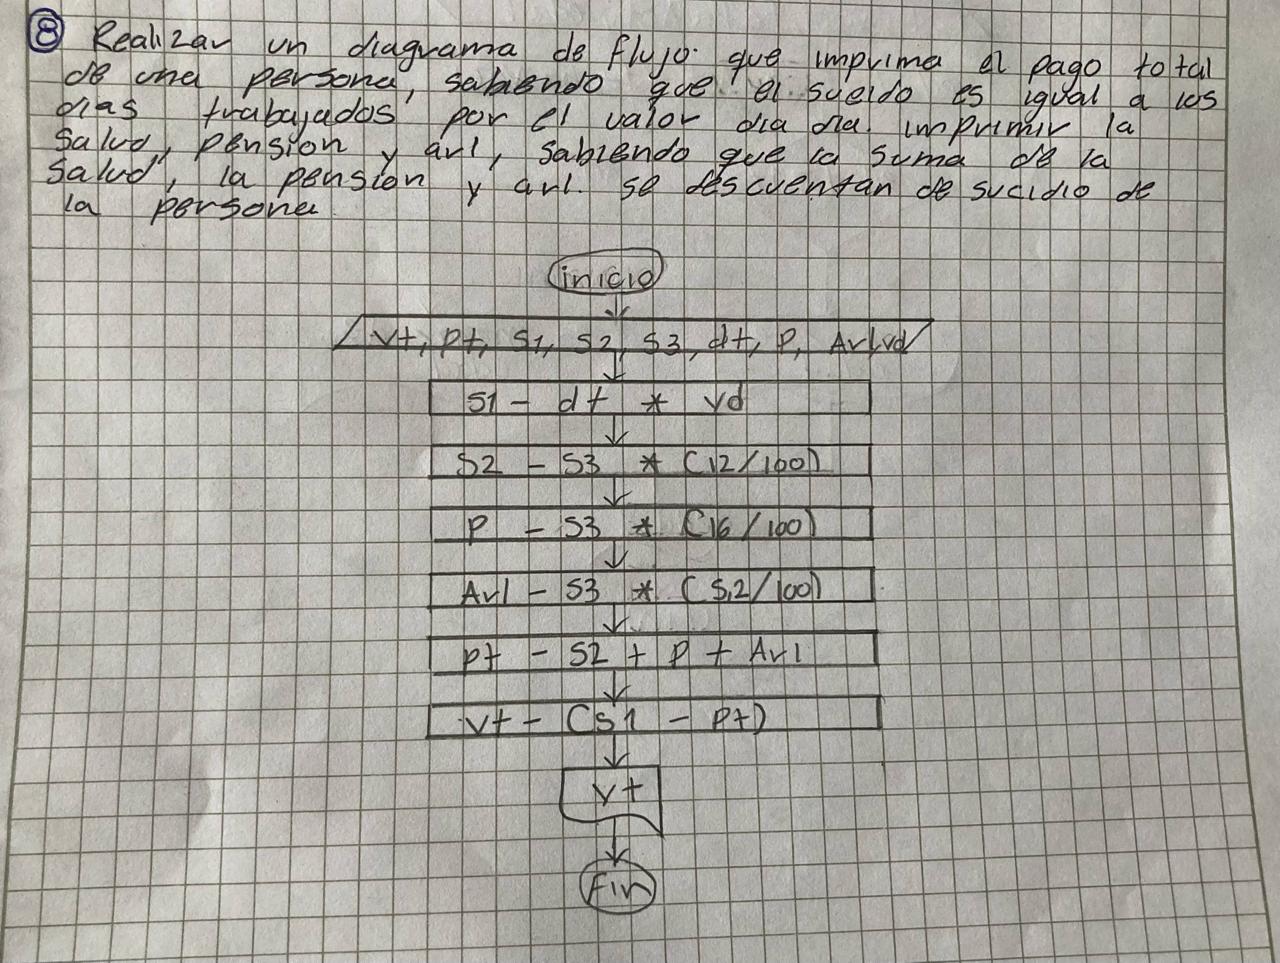 8 Realizar un diagrama de flujo que imprima el pago total
de una persona, sabiendo que el sueldo es igual a los
dias trabajados por el valor dia dia. imprimir la
salud, pension y arl, sabiendo que la suma de la
salud, la pension y arl. se descuentan de sucidio de
la persona
inicio
vt, pt, S1, S2, S3, dt, P, Arl, vd
S1 - dt * vd
S2 - S3 * (12/100)
P - S3 * (16/100)
Arl - S3 * (5,2/100)
pt - S2 + P + Arl
vt - (S1 - pt)
vt
Fin